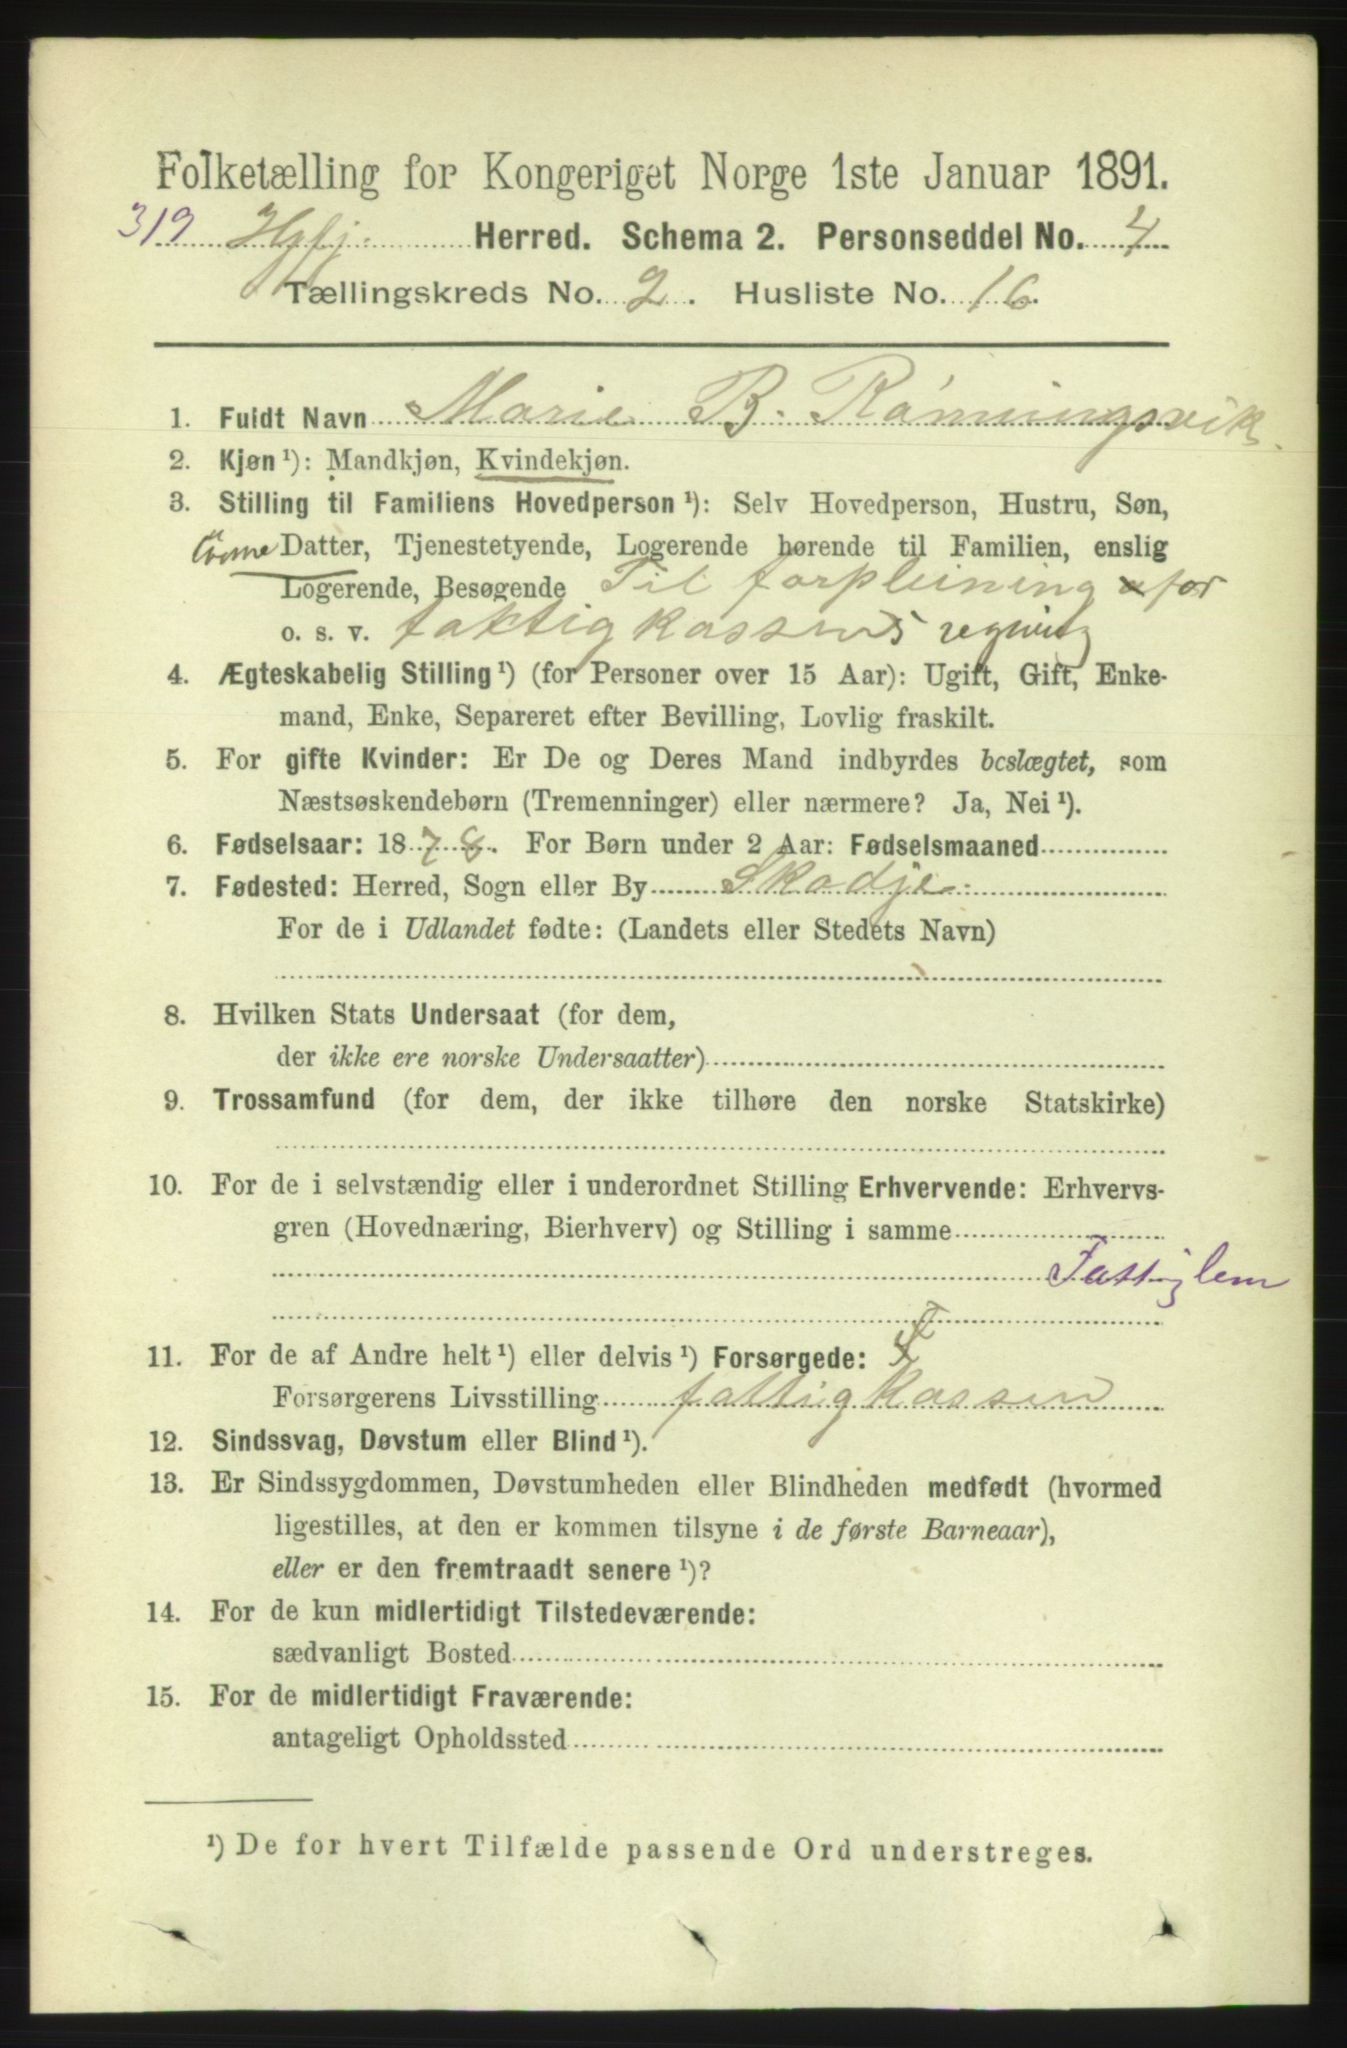 Folketælling for Kongeriget Norge 1ste Januar 1891.
319 Herred. Schema 2. Personseddel No. 4
Tællingskreds No. 2. Husliste No. 16.
1. Fuldt Navn Marie B. Rønningsvik
2. Kjøn ¹): Mandkjøn, Kvindekjøn.
3. Stilling til Familiens Hovedperson ¹): Selv Hovedperson, Hustru, Søn,
Datter, Tjenestetyende, Logerende hørende til Familien, enslig
Logerende, Besøgende Til forpleining for
o. s. v. fattigkassens regning
4. Ægteskabelig Stilling ¹) (for Personer over 15 Aar): Ugift, Gift, Enke-
mand, Enke, Separeret efter Bevilling, Lovlig fraskilt.
5. For gifte Kvinder: Er De og Deres Mand indbyrdes beslægtet, som
Næstsøskendebørn (Tremenninger) eller nærmere? Ja, Nei ¹).
6. Fødselsaar: 1878. For Børn under 2 Aar: Fødselsmaaned
7. Fødested: Herred, Sogn eller By Skodje.
For de i Udlandet fødte: (Landets eller Stedets Navn)
8. Hvilken Stats Undersaat (for dem,
der ikke ere norske Undersaatter)
9. Trossamfund (for dem, der ikke tilhøre den norske Statskirke)
10. For de i selvstændig eller i underordnet Stilling Erhvervende: Erhvervs-
gren (Hovednæring, Bierhverv) og Stilling i samme
Fattiglem
11. For de af Andre helt ¹) eller delvis ¹) Forsørgede: F
Forsørgerens Livsstilling fattigkassen
12. Sindssvag, Døvstum eller Blind ¹).
13. Er Sindssygdommen, Døvstumheden eller Blindheden medfødt (hvormed
ligestilles, at den er kommen tilsyne i de første Barneaar),
eller er den fremtraadt senere ¹)?
14. For de kun midlertidigt Tilstedeværende:
sædvanligt Bosted
15. For de midlertidigt Fraværende:
antageligt Opholdssted
¹) De for hvert Tilfælde passende Ord understreges.